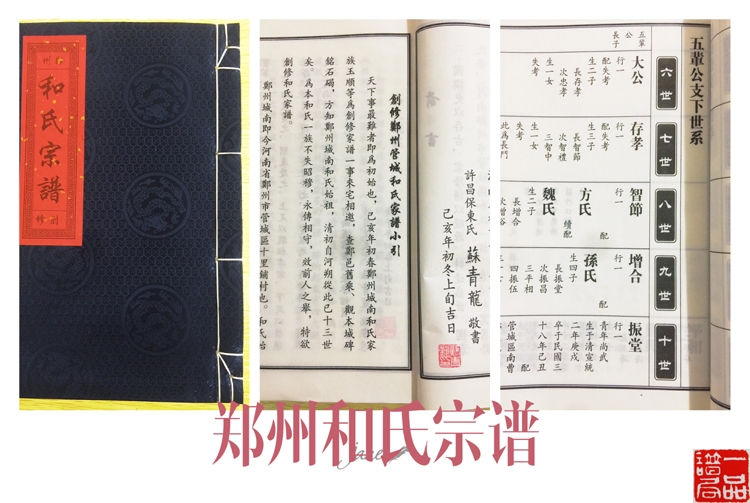 和氏宗譜
創修
創修鄭州管城和氏家譜小引
天下事最難者即爲初始也，己亥年初春鄭州城南和氏家
族玉順等爲創修家譜一事來宅相邀，查鄭邑舊乘、觀本城碑
銘石碣，方知鄭城南和氏始祖，清初自河朔從此已十三世
矣。爲本和氏一族不失昭穆，永傳相守，效前人之舉，特欲
創修和氏家譜。
鄭州城南即今河南省鄭州市管城區十里鋪村也。和氏始
許昌保東氏 蘇青龍 敬書
己亥年初冬上旬吉日
五輩公支下世系
六世
五輩公長子
大公
行一
配失考
生二子
長存孝
次忠孝
生一女
失考
七世
存孝
行一
配失考
生三子
長智節
次智禮
三智中
生一女
失考
此爲長門
八世
智節
行一
配
方氏
續配
魏氏
生二子
長增合
次增裕
九世
增合
行一
配
孫氏
生四子
長振堂
次振昌
三平相
四振伍
十世
振堂
行一
青年尚武
生于清宣統
二年庚戌
卒于民國三
十八年己丑
配
管城區南曹
郑州和氏宗谱
一品譜局